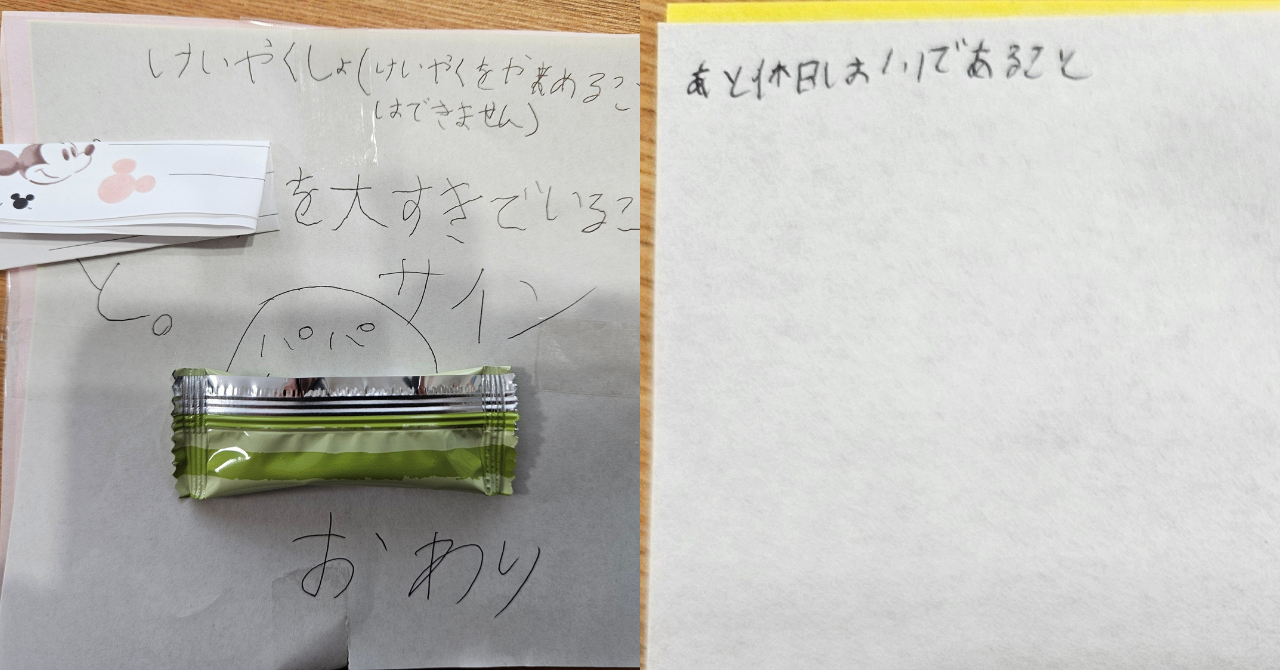 けいやくしょ(けいやくをやめるこ
はできません)
を大すきでいるこ
と。
サイン
パパ
おわり
あと休日しおいりであること